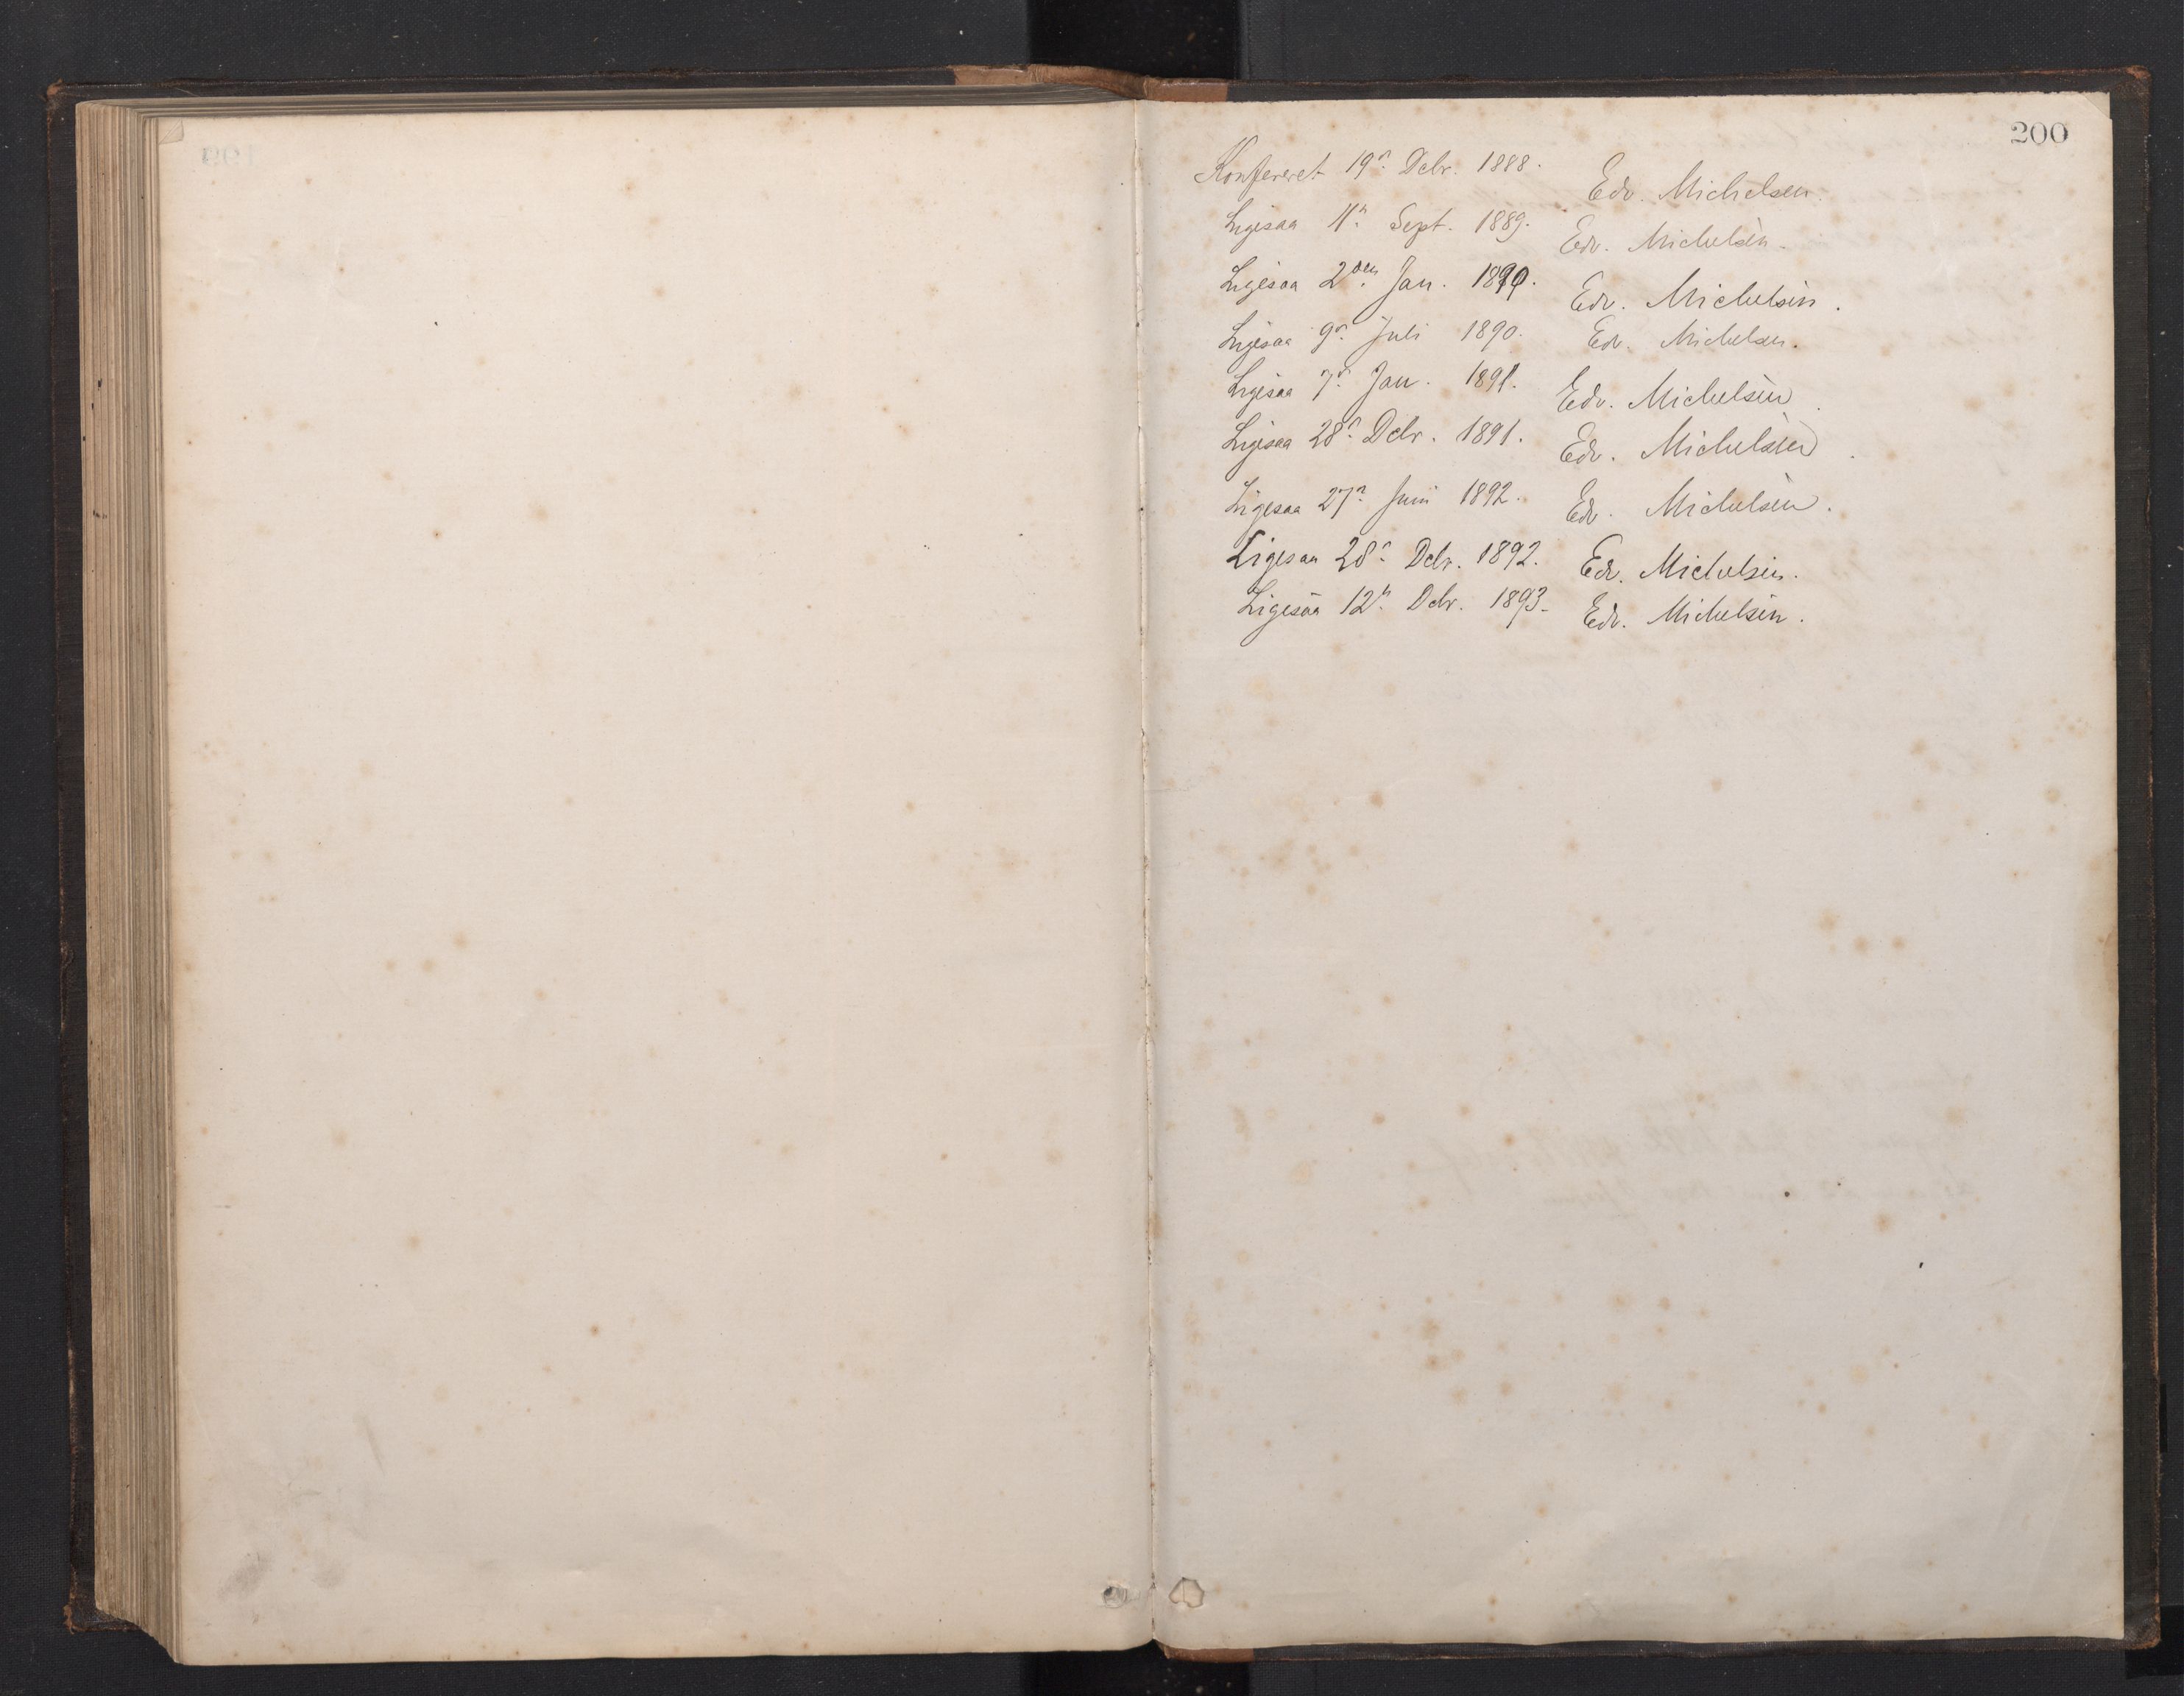 200
Konfereret 19n Debr. 1888. Edv. Michelsen.
Ligesaa 11n Sept. 1889. Edv. Michelsen.
Ligesaa 2den Jan. 1890. Edv. Michelsen.
Ligesaa 9n Juli 1890. Edv. Michelsen.
Ligesaa 7n Jan. 1891. Edv. Michelsen.
Ligesaa 28n Debr. 1891. Edv. Michelsen.
Ligesaa 27n Juni 1892. Edv. Michelsen.
Ligesaa 28n Debr. 1892. Edv. Michelsen.
Ligesaa 12n Debr. 1893. Edv. Michelsen.